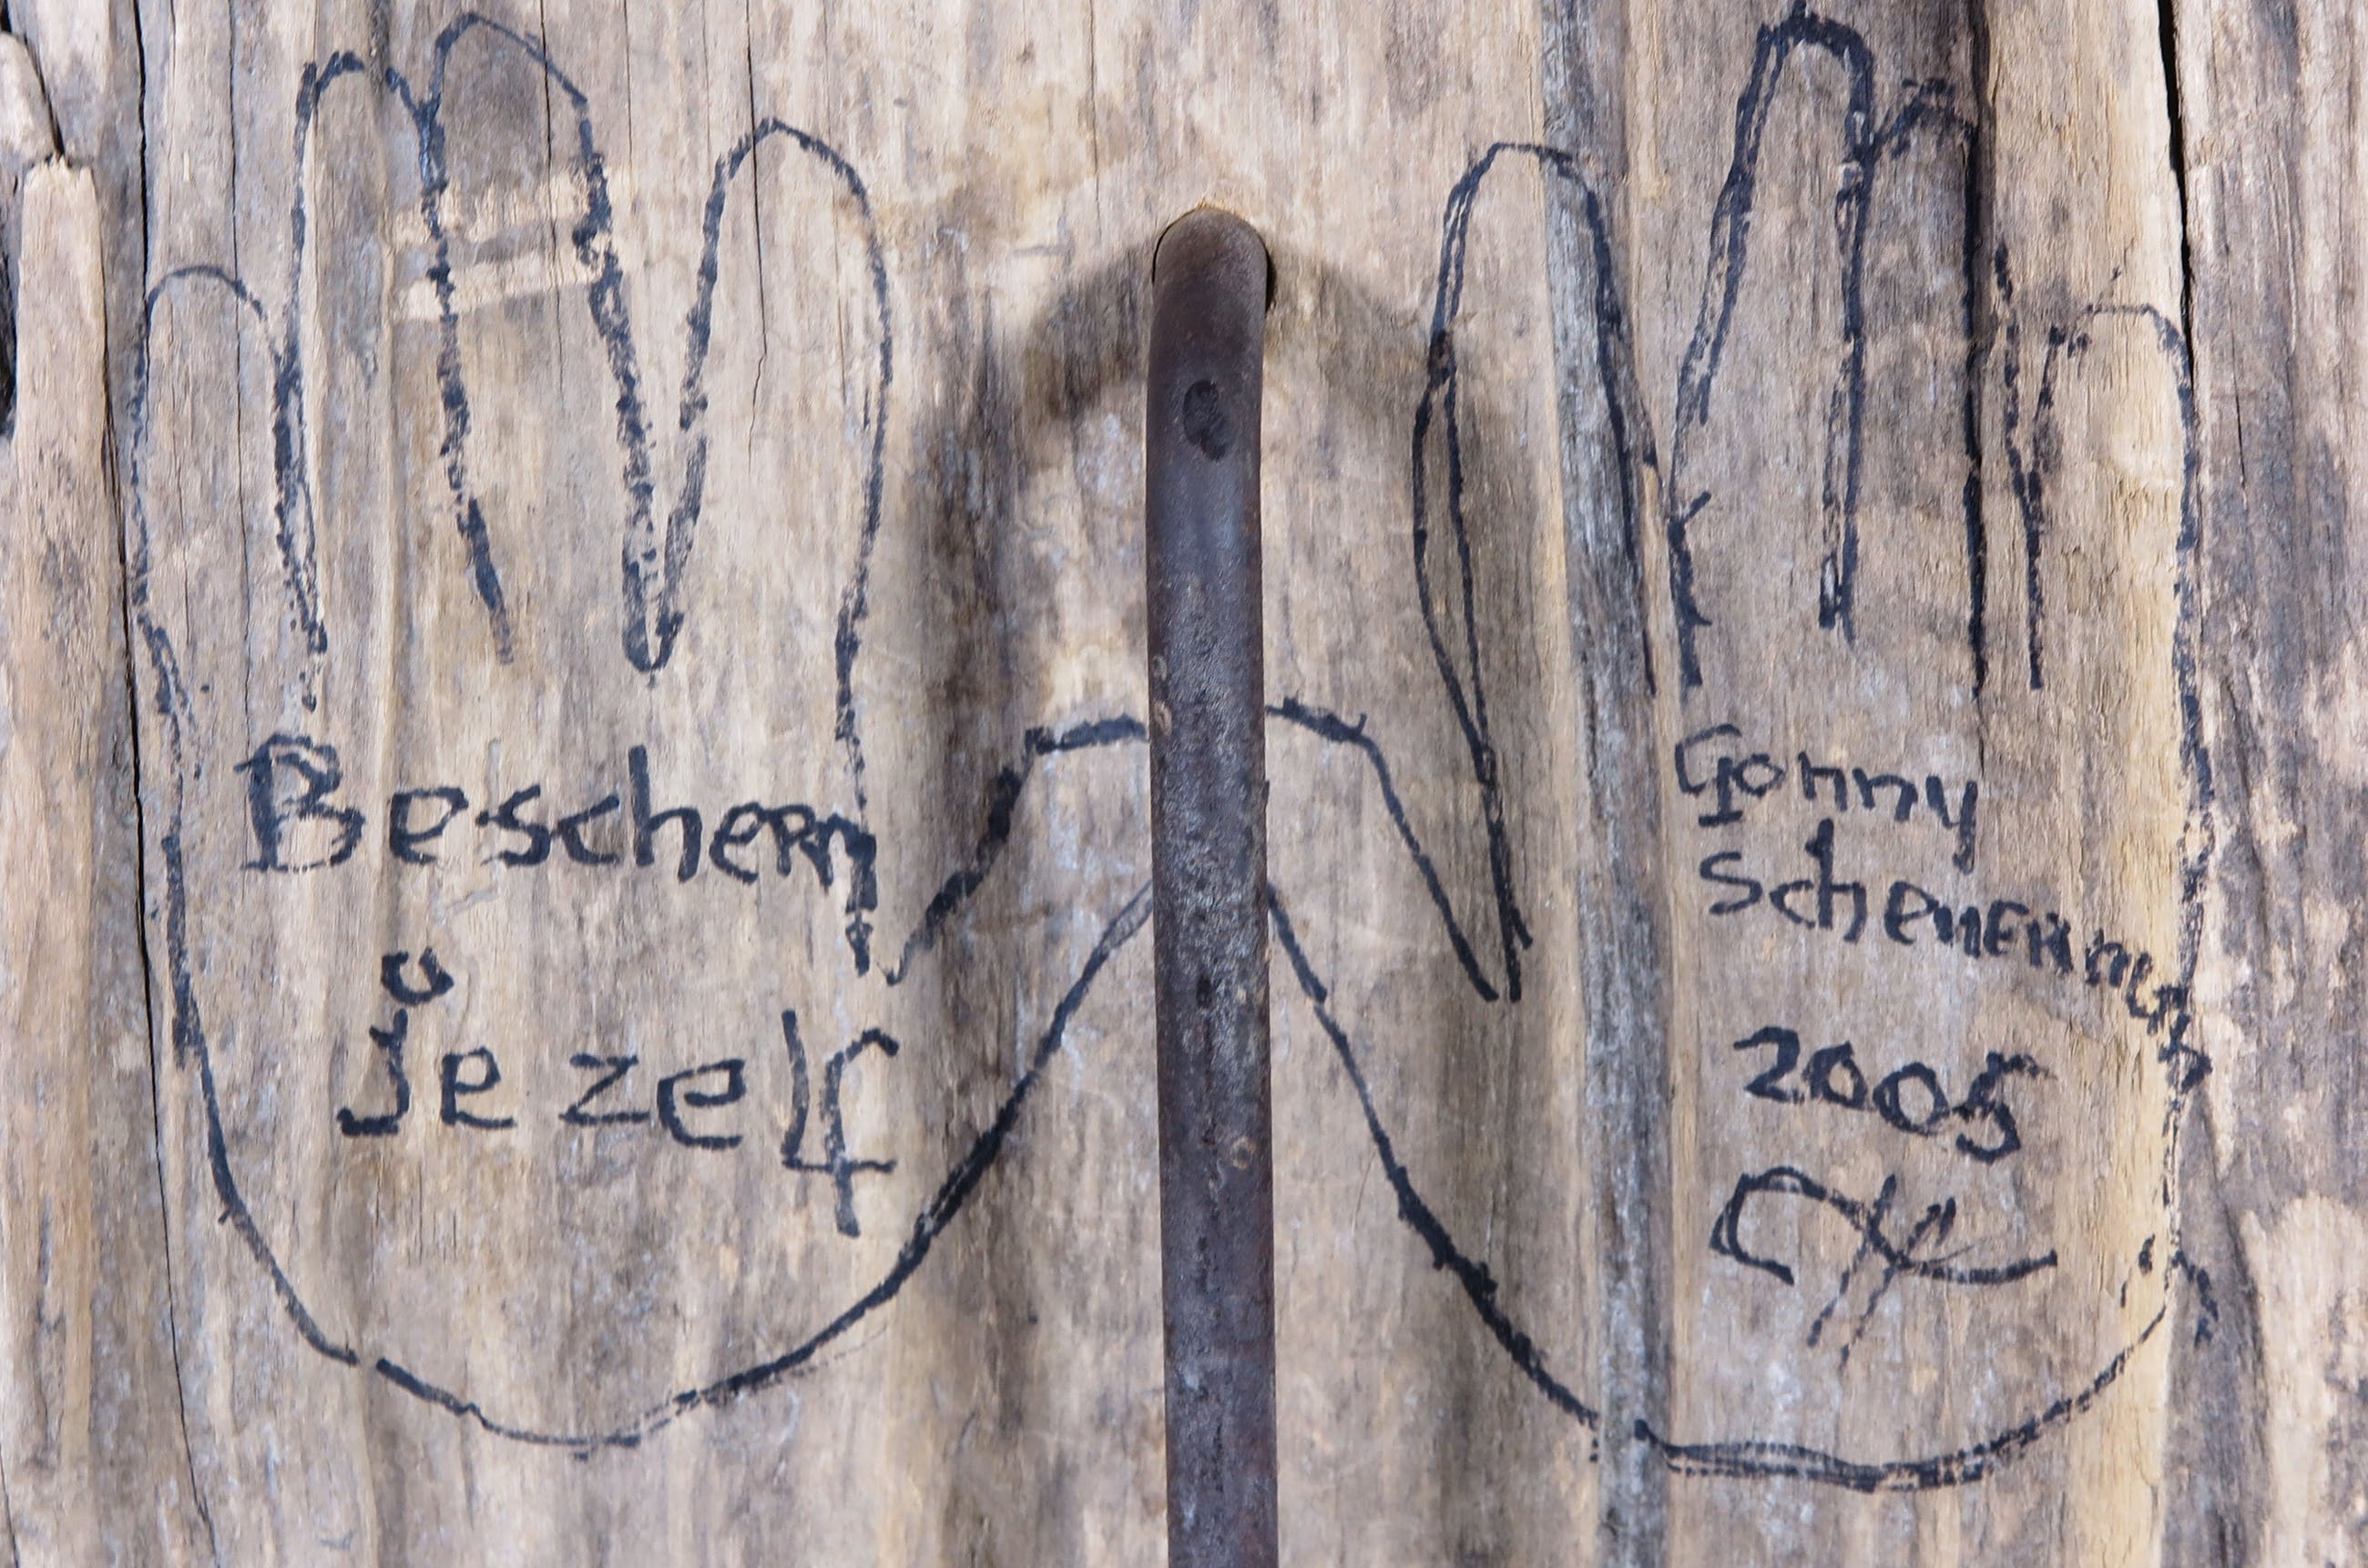 Bescherm
je zelf
Gonny
Scheuerman
2005